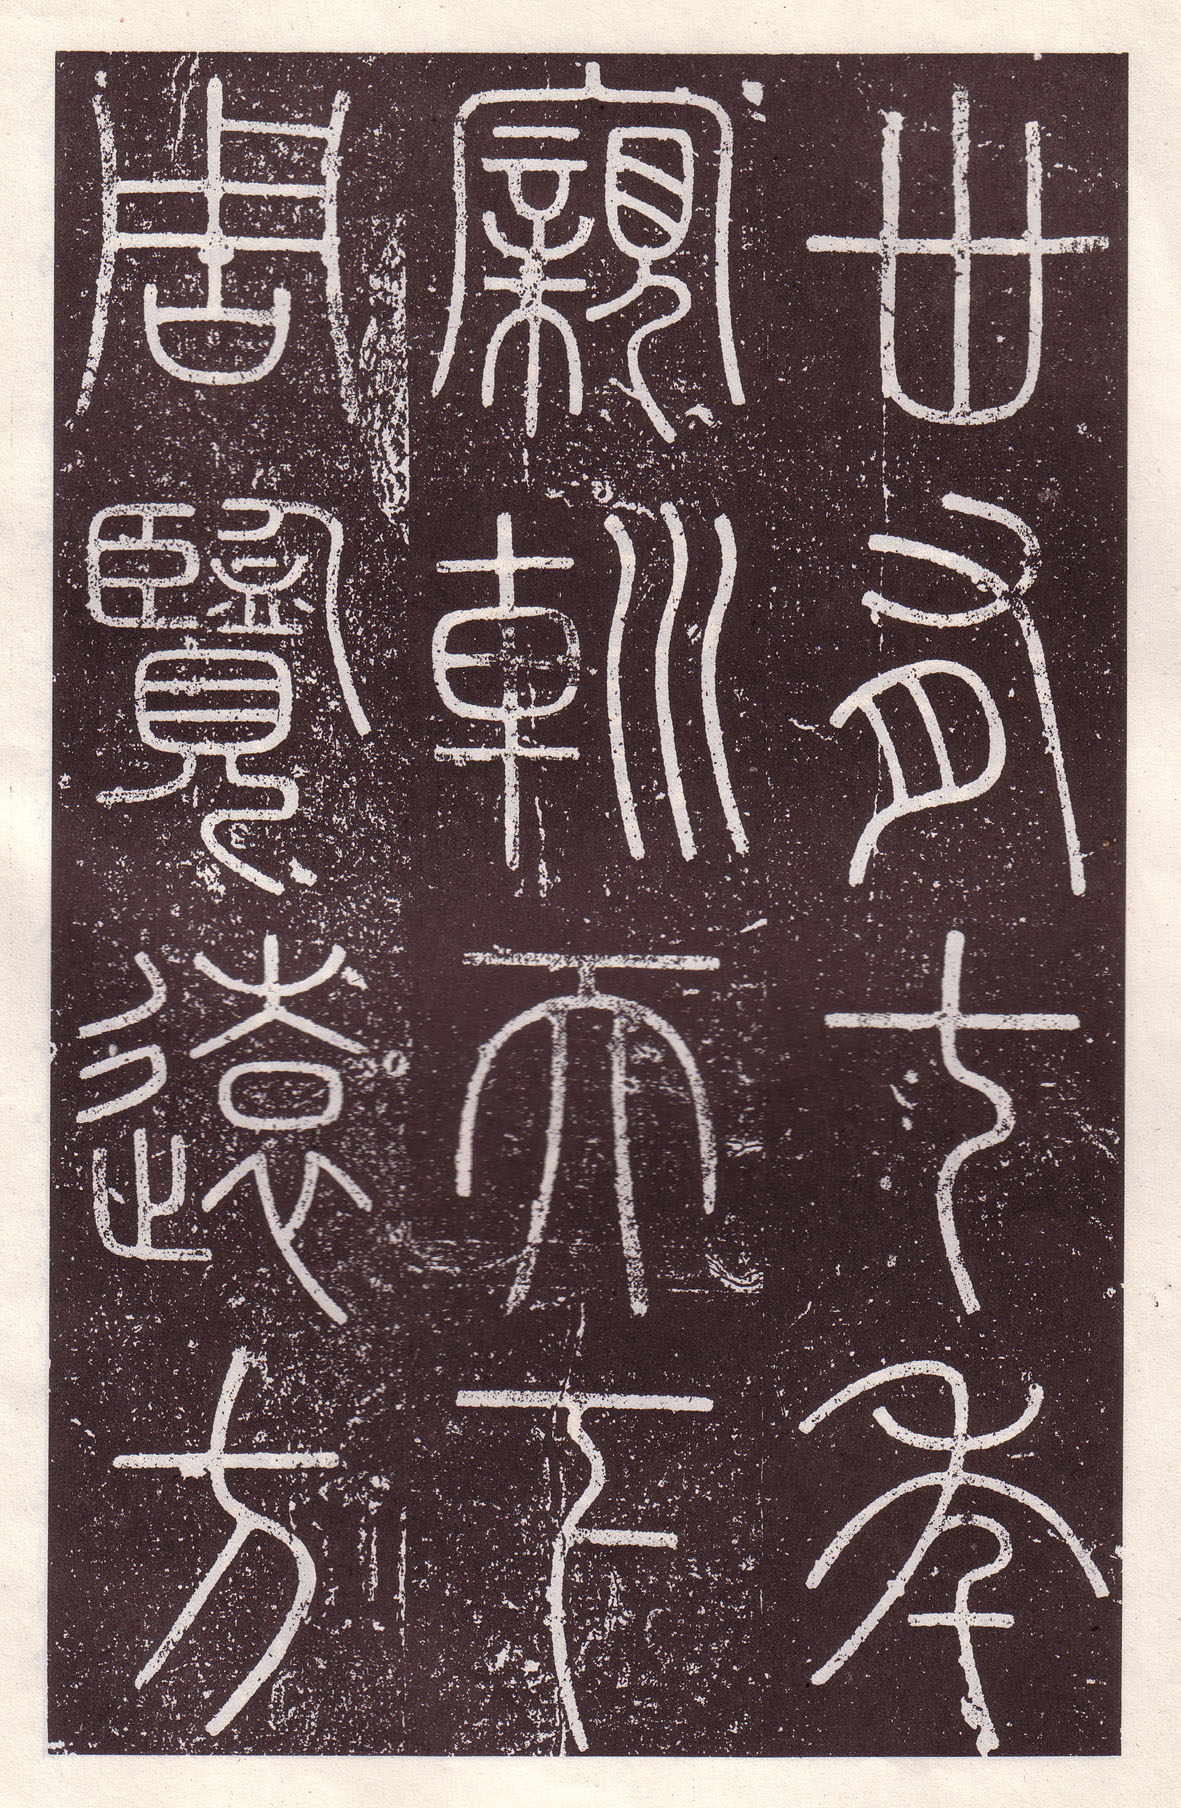 卅有七年
寴巡天下
周覽遠方